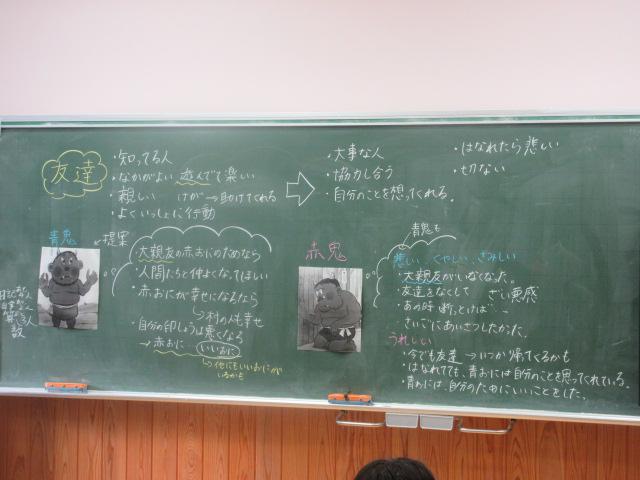 友達
・知ってる人
・なかがよい 遊んでて楽しい
・親しい けが→助けてくれる
・よくいっしょに行動
・大事な人
・協力し合う
・自分のことを想ってくれる。
・はなれたら悲しい
・切ない
青鬼
提案
・大親友の赤おにのためなら
・人間たちと仲よくなってほしい
・赤おにが幸せになるなら
→村の人も幸せ
・自分の印しょうは悪くなる
→赤おに…いいおに
→他にもいいおにが
いるかも
赤鬼
青鬼も
悲しい、くやしい、さみしい
・大親友がいなくなった。
・友達をなくして 悪感
・あの時、断っとけば…
さいごにあいさつしたかった。
うれしい
・今でも友達→いつか帰ってくるかも
・はなれてても、青おには自分のことを思ってくれている。
・青おには、自分のためにいいことをした。